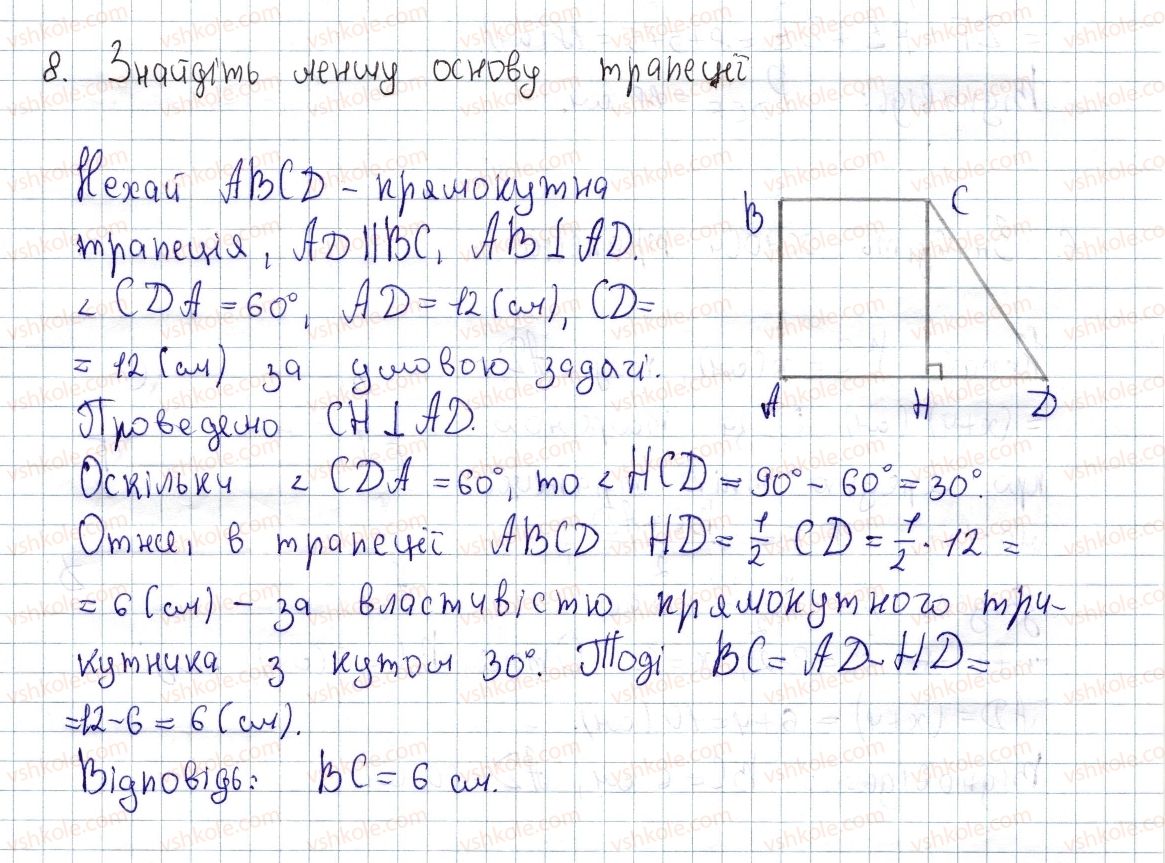 8. Знайдіть меншу основу трапеції
Нехай ABCD - прямокутна
трапеція, AD||BC, AB⊥AD.
∠CDA = 60°, AD = 12 (см), CD =
= 12 (см) за умовою задачі.
Проведемо CH⊥AD.
Оскільки ∠CDA = 60°, то ∠HCD = 90° - 60° = 30°.
Отже, в трапеції ABCD HD = 1/2 CD = 1/2 · 12 =
= 6 (см) - за властивістю прямокутного три-
кутника з кутом 30°. Тоді BC = AD - HD =
= 12 - 6 = 6 (см).
Відповідь: BC = 6 см.
B
C
A
H
D
vshkole.com